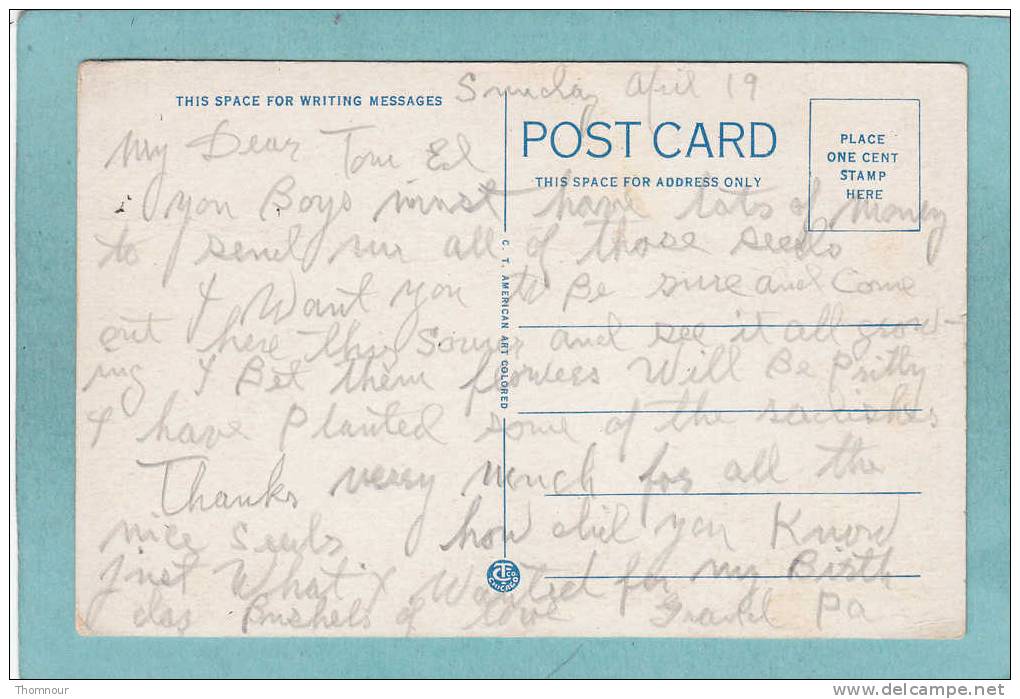 THIS SPACE FOR WRITING MESSAGES
Sunday April 19
POST CARD
THIS SPACE FOR ADDRESS ONLY
PLACE
ONE CENT
STAMP
HERE
My Dear Tom Ed
you Boys must have lots of money
to send me all of those seeds
I Want you to Be sure and Come
out here this and see it all grow-
ing I Bet them flowers Will Be Pritty
I have Planted some of the radishes
Thanks very much for all the
nice seeds how did you Know
just What I Wanted for my Birth
day Bushels of love Grand Pa
C. T. AMERICAN ART COLORED
CT CO
CHICAGO
Thomnour
www.delcampe.net